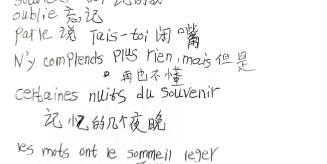 oublie 忘记
parle 说 Tais-toi 闭嘴
N'y complends plus rien, mais 但是
再也不懂
certaines nuits du souvenir
记忆的几个夜晚
les mots ont le sommeil leger